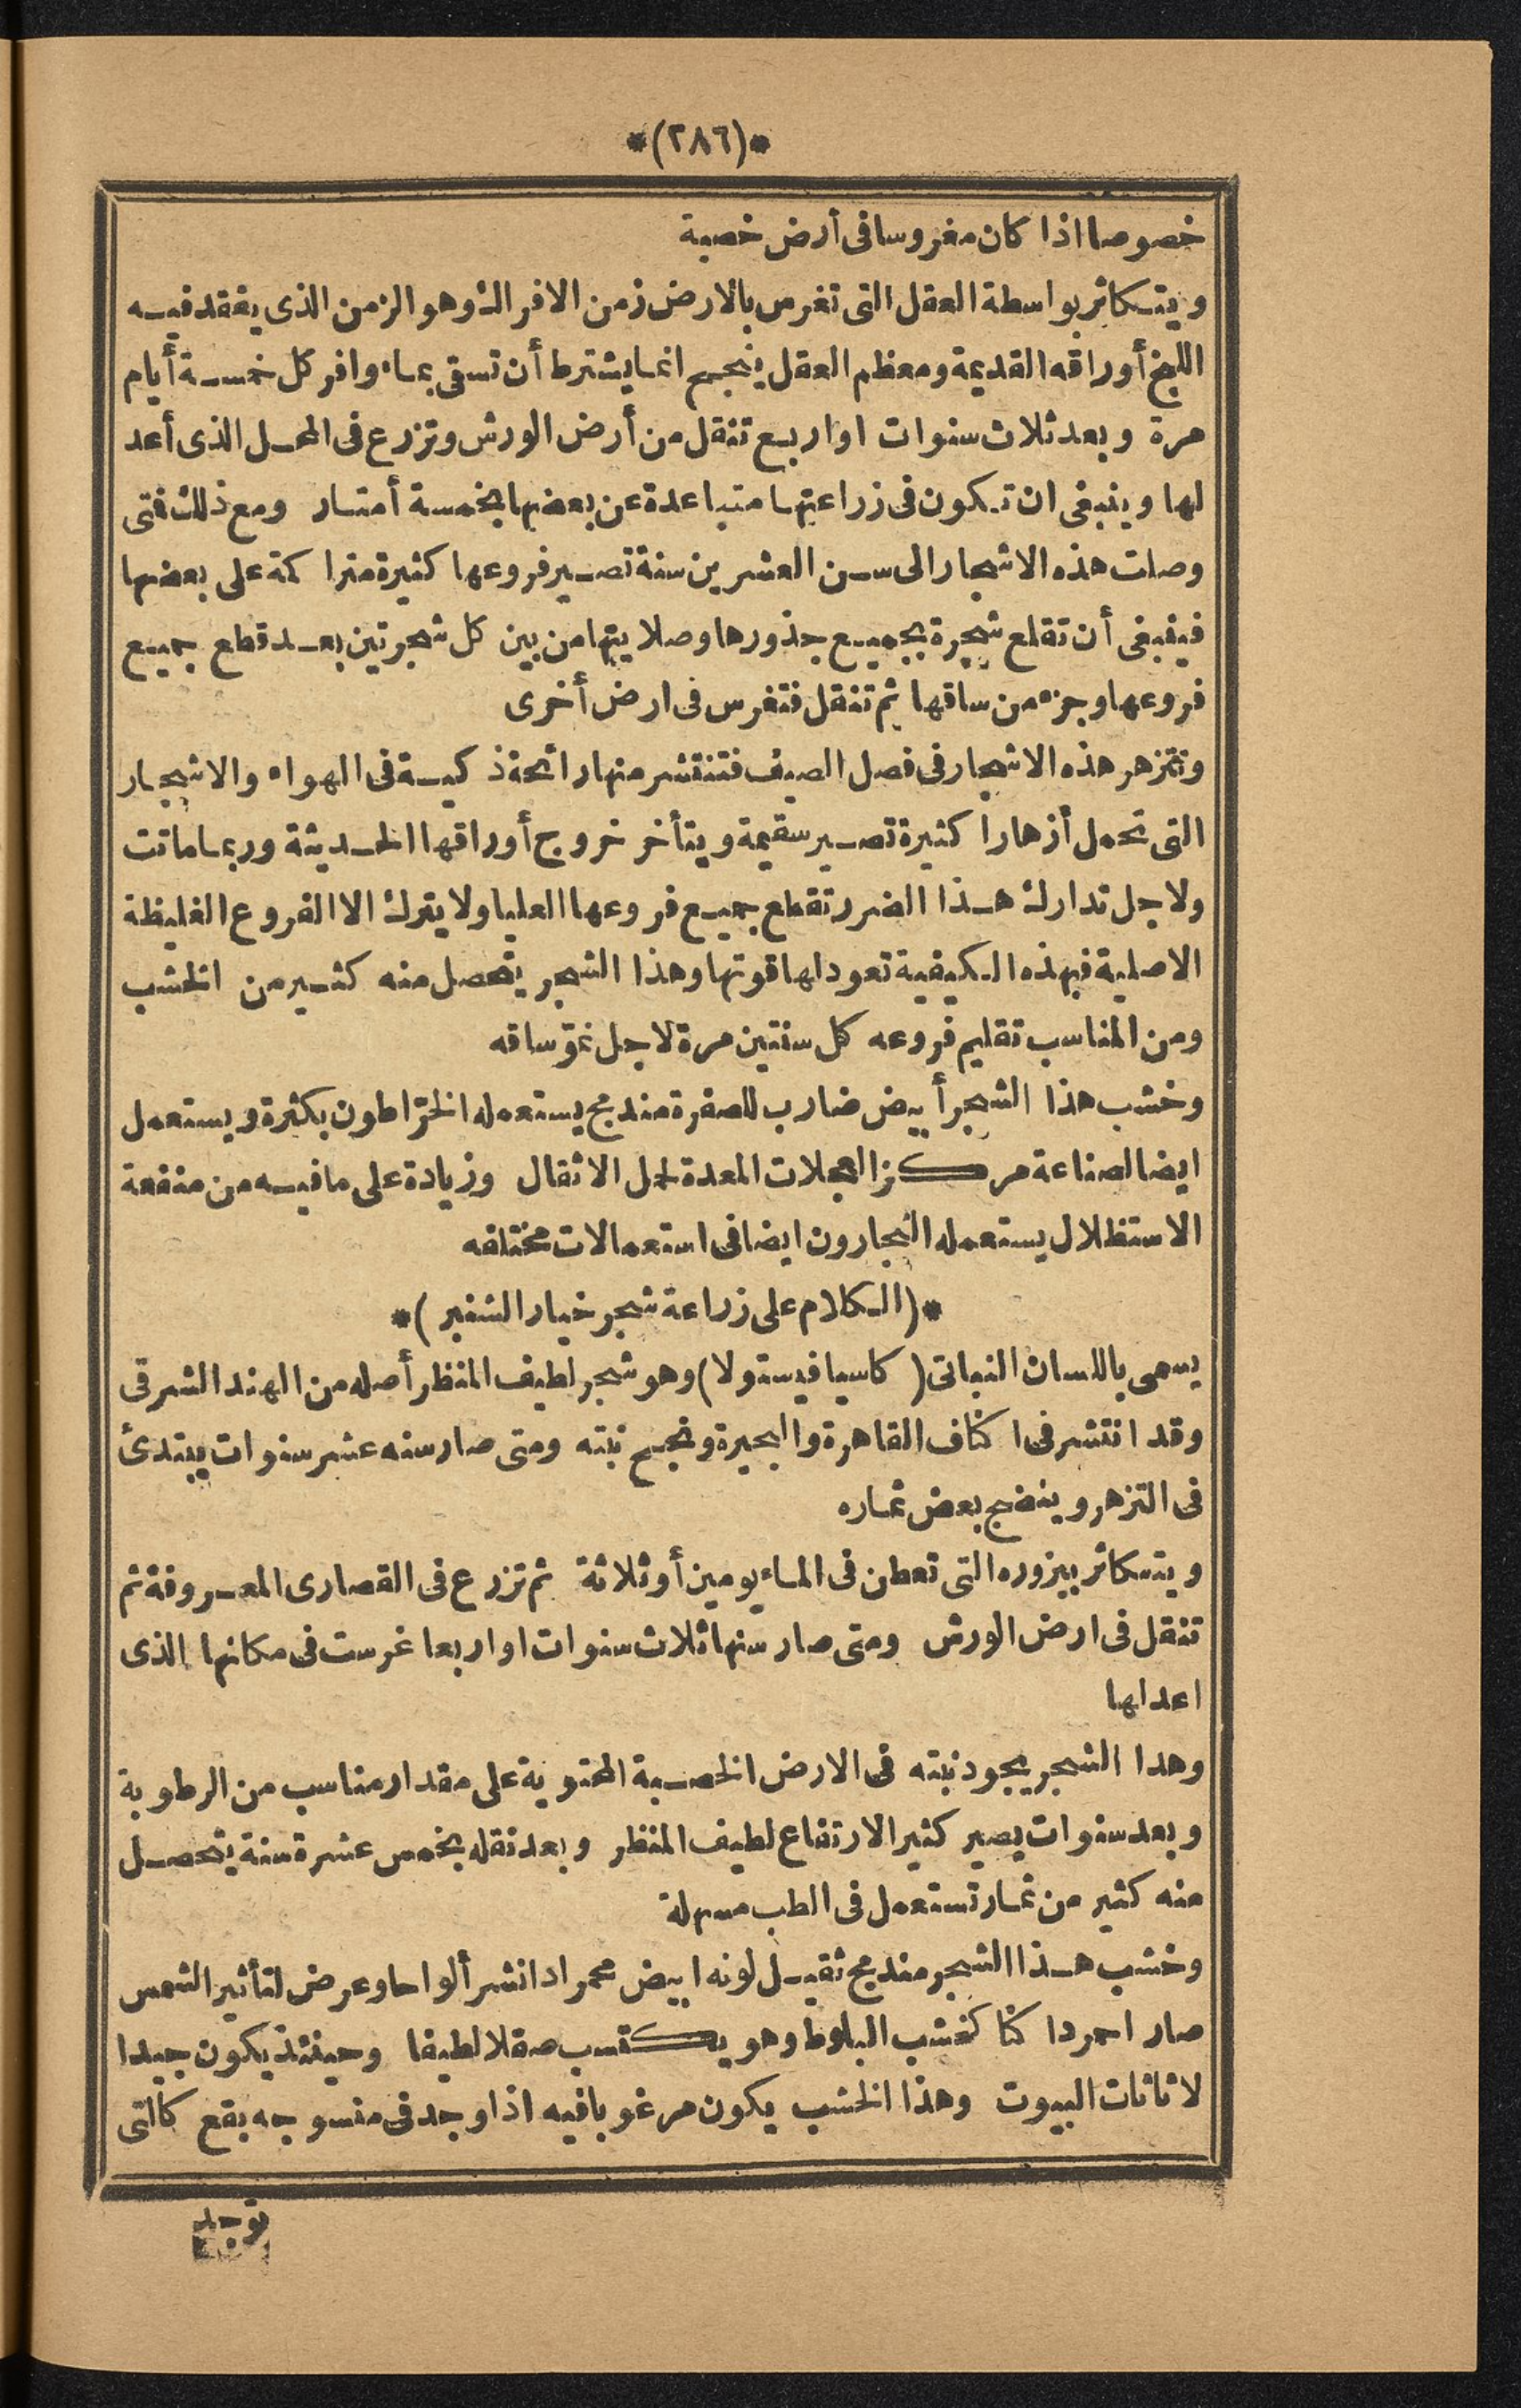 *(٢٨٦)*
خصوصا اذا كان مغروسا فى أرض خصبة
ويتكاثر بواسطة العقل التى تغرس بالارض زمن الافراك وهو الزمن الذى يفقد فيه
اللبخ أوراقه القديمة ومعظم العقل ينجح انما يشترط أن تسقى بماء وافر كل خمسة أيام
مرة وبعد ثلاث سنوات او اربع تنقل من أرض الورش وتزرع فى المحل الذى أعد
لها وينبغى ان تكون فى زراعتها متباعدة عن بعضها بخمسة أمتار ومع ذلك فتى
وصلت هذه الاشجار الى سن العشرين سنة تصير فروعها كثيرة متراكمة على بعضها
فينبغى أن تقلع شجرة بجميع جذورها وصلايتها من بين كل شجرتين بعد قطع جميع
فروعها وجزء من ساقها ثم تنقل فتغرس فى ارض أخرى
وتتزهر هذه الاشجار فى فصل الصيف فتنتشر منها رائحة ذكية فى الهواء والاشجار
التى تحمل أزهارا كثيرة تصير سقيمة ويتأخر خروج أوراقها الحديثة وربما ماتت
ولاجل تدارك هذا الضرر تقطع جميع فروعها العليا ولا يترك الا الفروع الغليظة
الاصلية فبهذه الكيفية تعود لها قوتها وهذا الشجر يتحصل منه كثير من الخشب
ومن المناسب تقليم فروعه كل سنتين مرة لاجل نمو ساقه
وخشب هذا الشجر أبيض ضارب للصفرة مندمج يستعمله الخراطون بكثرة ويستعمل
ايضا لصناعة مركز العجلات المعدة لحمل الاثقال وزيادة على ما فيه من منفعة
الاستظلال يستعمله النجارون ايضا فى استعمالات مختلفه
*(الكلام على زراعة شجر خيار الشنبر)*
يسمى باللسان النباتى (كاسيا فيستولا) وهو شجر لطيف المنظر أصله من الهند الشرقى
وقد انتشر فى اكناف القاهرة والبحيرة ونجح نبته ومتى صار سنه عشر سنوات يبتدئ
فى التزهر وينضج بعض ثماره
ويتكاثر ببزوره التى تعطن فى الماء يومين أو ثلاثة ثم تزرع فى القصارى المعروفة ثم
تنقل فى ارض الورش ومتى صار سنها ثلاث سنوات او اربعا غرست فى مكانها الذى
اعد لها
وهدا الشجر يجود نبته فى الارض الخصبة المحتوية على مقدار مناسب من الرطوبة
وبعد سنوات يصير كثير الارتفاع لطيف المنظر وبعد نقله بخمس عشرة سنة يتحصل
منه كثير من ثمار تستعمل فى الطب مسهلة
وخشب هذا الشجر مندمج ثقيل لونه ابيض محمر ادا نشر ألواحا وعرض لتأثير الشمس
صار احمر داكنا كخشب البلوط وهو يكتسب صقلا لطيفا وحينئذ يكون جيدا
لاثاثات البيوت وهذا الخشب يكون مرغوبا فيه اذا وجد فى منسوجه بقع كالتى
توجد